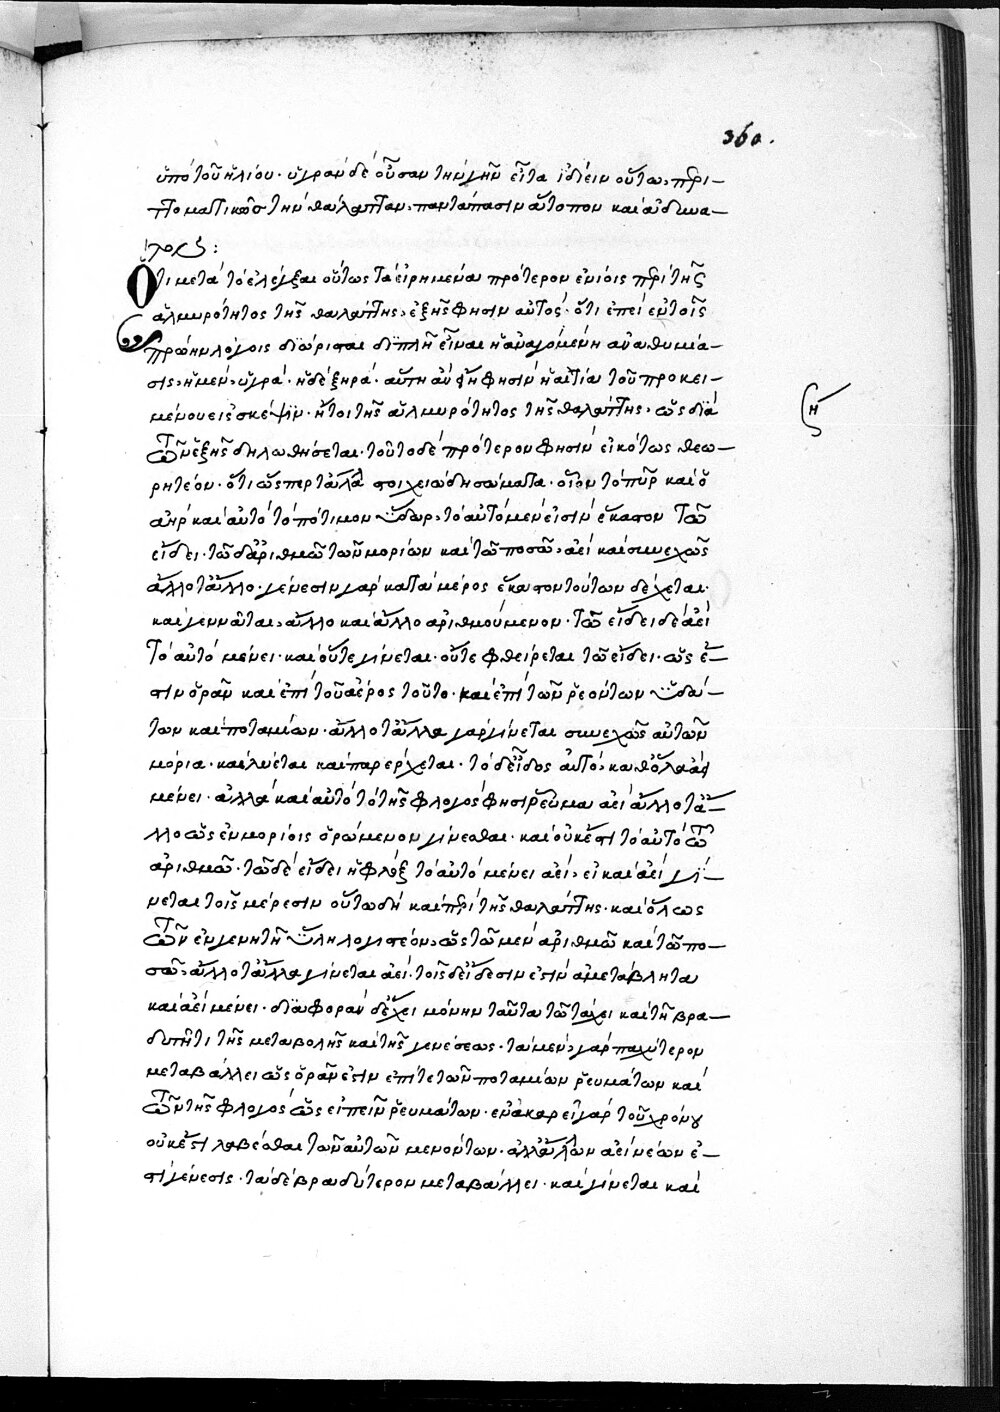 360.
ὑπὸ τοῦ ἡλίου· ὑγρὰν δὲ οὖσαν τὴν γῆν εἶτα ἰδίειν οὕτω, περι-
ττωματικῶς τὴν θάλατταν, παντάπασιν ἄτοπον καὶ ἀδιανο-
Ὅτι μετὰ τὸ ἐλέγξαι οὕτως τὰ εἰρημένα πρότερον ἐνίοις περὶ τῆς
ἁλμυρότητος τῆς θαλάττης, ἑξῆς φησιν αὐτὸς· ὅτι ἐπεὶ ἐν τοῖς
πρώην λόγοις διώρισται διπλῆ εἶναι ἡ ἀναγομένη ἀναθυμία-
σις, ἡ μὲν, ὑγρά· ἡ δὲ ξηρά· αὕτη ἂν εἴη φησὶν ἡ αἰτία τοῦ προκει-
μένου εἰς σκέψιν· ἤτοι τῆς ἁλμυρότητος τῆς θαλάττης, ὡς διὰ
η
τῶν ἑξῆς δηλωθήσεται· τοῦτο δὲ πρότερον φησὶν εἰκότως θεω-
ρητέον· ὅτι ὥσπερ τἆλλα στοιχειώδη σώματα· οἷον τὸ πῦρ καὶ ὁ
ἀὴρ καὶ αὐτὸ τὸ πότιμον ὕδωρ, τὸ αὐτὸ μέν εἰσιν ἕκαστον τῶ
εἴδει· τῶ δ' ἀριθμῶ τῶν μορίων καὶ τῶ ποσῶ, ἀεὶ καὶ συνεχῶς
ἄλλοτ' ἄλλο· γένεσιν γὰρ κατὰ μέρος ἕκαστον τούτων δέχεται·
καὶ γεννᾶται, ἄλλο καὶ ἄλλο ἀριθμούμενον· τῶ εἴδει δὲ ἀεὶ
τὸ αὐτὸ μένει· καὶ οὔτε γίνεται· οὔτε φθείρεται τῶ εἴδει· ὡς ἔ-
στιν ὁρᾶν καὶ ἐπὶ τοῦ ἀέρος τοῦτο· καὶ ἐπὶ τῶν ῥεόντων ὑδά-
των καὶ ποταμίων· ἄλλοτ' ἄλλα γὰρ γίνεται συνεχῶς αὐτῶν
μόρια· καὶ λύεται καὶ παρέρχεται· τὸ δ' εἶδος αὐτὸ, καθόλα ἀεὶ
μένει· ἀλλὰ καὶ αὐτὸ τὸ τῆς φλογός φησι ῥεῦμα ἀεὶ ἄλλοτ' ἄ-
λλο ὡς ἐν μορίοις ὁρώμενον γίνεσθαι· καὶ οὐκ ἔστι τὸ αὐτὸ τῶ
ἀριθμῶ· τῶ δὲ εἴδει ἡ φλὸξ τὸ αὐτὸ μένει ἀεὶ, εἰ καὶ ἀεὶ γί-
νεται τοῖς μέρεσιν οὕτω δὴ καὶ περὶ τῆς θαλάττης· καὶ ὅλως
τῶν ἐν γενητῆ ὕλη λογιστέον, ὡς τῶ μὲν ἀριθμῶ καὶ τῶ πο-
σῶ, ἄλλοτ' ἄλλα γίνεται ἀεί· τοῖς δ' εἴδεσιν ἐστὶν ἀμετάβλητα
καὶ ἀεὶ μένει· διαφορὰν δ' ἔχει μόνην ταῦτα τῶ τάχει καὶ τῆ βρα-
δυτῆτι τῆς μεταβολῆς καὶ τῆς γενέσεως· τὰ μὲν, γὰρ ταχύτερον
μεταβάλλει ὡς ὁρᾶν ἐστιν ἐπί τε τῶν ποταμίων ῥευμάτων καὶ
τῶν τῆς φλογὸς ὡς εἰπεῖν ῥευμάτων· ἐν ἀκαρεῖ γὰρ τοῦ χρόνου
οὐκ ἔστι λαβέσθαι τῶν αὐτῶν μενόντων· ἀλλ' ἄλλων ἀεὶ νέων ἐ-
στὶ γένεσις· τὰ δὲ βραδύτερον μεταβάλλει· καὶ γίνεται καὶ